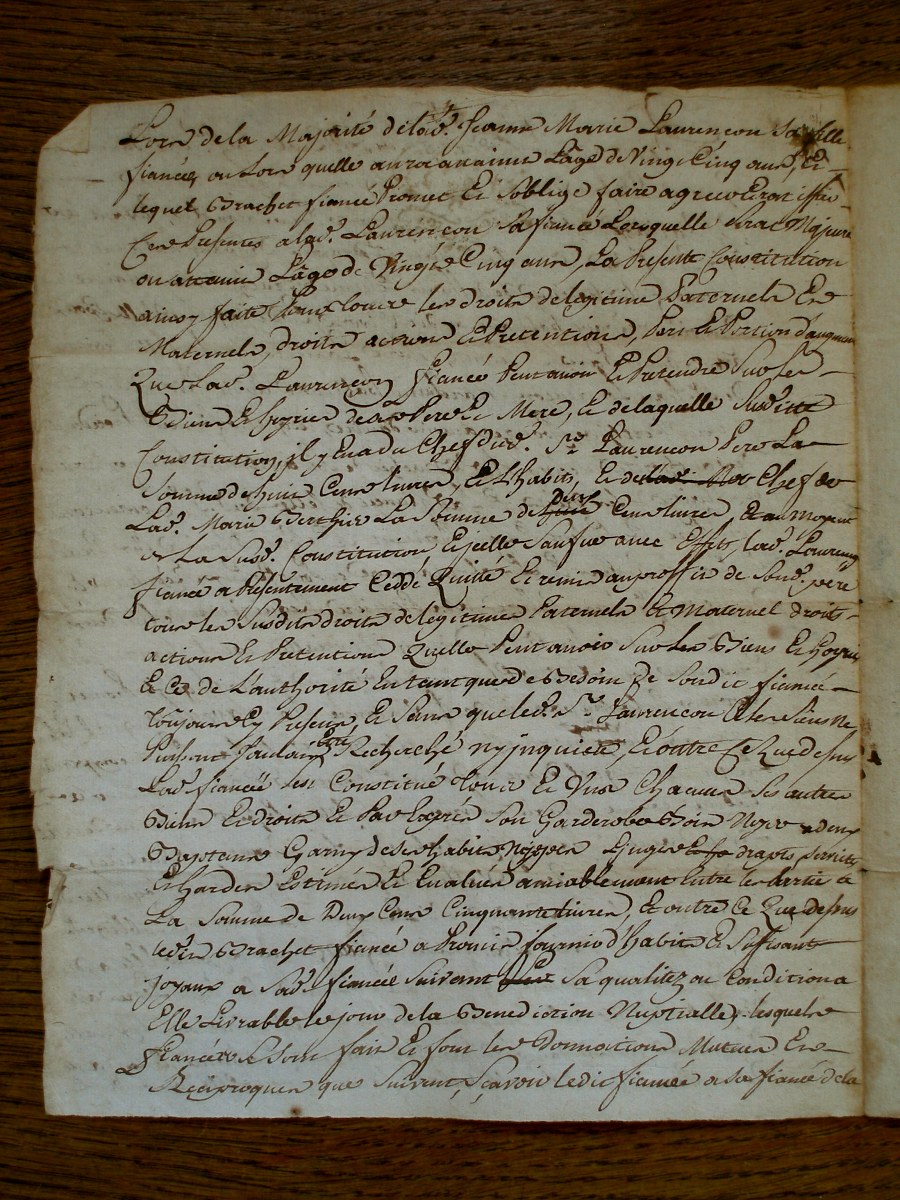 Lors de la Majorité de lad.te Jeanne Marie Laurençon sa fille
fiancée, ou Lors quelle aura attaint Lâge de Vingt Cinq ans, Et
lequel Brachet fiancé Promet Et soblige faire agreer Et ratiffier
Ces Presentes a lad.e Laurençon sa fiancé Lorsquelle sera Majeure
ou attaint Lâge de Vingt Cinq ans, La Presente Constitution
ainsy faite Pour tous les droits de legitime Paternels Et
Maternels, droits action Et Pretentions, Part Et Portion d'augment
Que Lad.e Laurençon fiancé Peut avoir Et Pretendre Sur les
Biens Et hoyries de ses Pere Et Mere, Et de laquelle Susd.itte
Constitution, il y en a du Chef dud. Sr Laurençon Pere La
Somme de huit Cent livres, Et L'habits, Et du Chef de
Lad.e Marie Berthier La Somme de Deux Cent livres, Et au moyent
de La Susd.e Constitution Et jcelle Sauf ue avec Effet, lad.e Laurençon
fiancée a Présentement Ceddé Quitté Et remis au proffit de Sond. père
tous les Susdits droits de légitimes Paternels Et Maternel droits
actions Et Pretentions Quelle Peut avoir Sur les Biens Et hoyries
Et Ce de L'authorité En tant que de Bedoin De Sondit fiancé
Toujours Cy Present Et Sans que led. Sr. Laurençon Et les Siens ne
Puissent Etre Recherché ny jnquieté, Et outre Ce Que dessus
Lad.e fiancée sest Constitué Tous Et Uns Chacuns ses autres
Biens Et droits Et Par Exprès Son Garderobe Bois Noyer a deux
Battans Garny de ses habits Linges Et draps
Et hardes Estimés Et Evalués amiablement Entre les Partie a
La Somme de Deux Cent Cinquante livres, Et outre Ce Que dessus
led.it Brachet fiancée a Promis fournir d'habits Et Suffisant
joyaux a Sad.e fiancée Suivant Sa qualitez ou Condition a
Elle Livrable le jour de la Benediction Nuptialle, lesquels
fiancées se Sont fait Et font les Donnations Mutuer Et
Reciproques que Suivent, Sçavoir ledit fiancée a sa fiancé de la